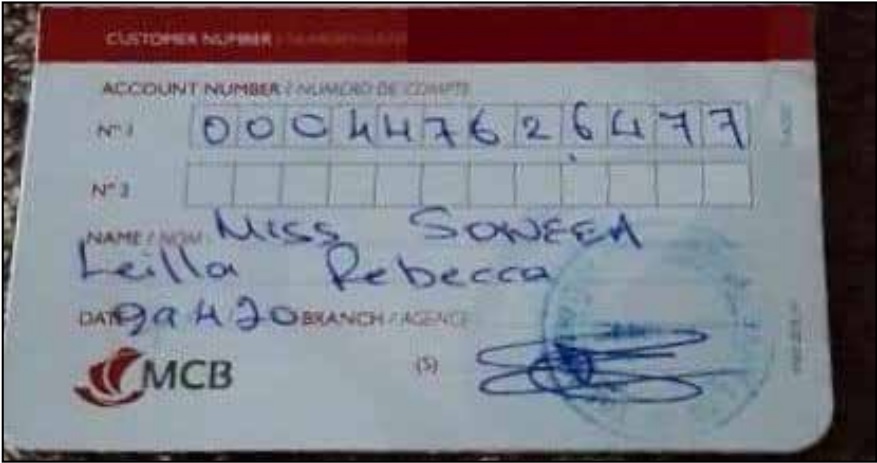 CUSTOMER NUMBER /
ACCOUNT NUMBER / NUMÉRO DE COMPTE
N° 1 000447626477
N° 2
NAME / NOM Miss SONEEA
Leilla Rebecca
DATE BRANCH / AGENCE
MCB
(S)